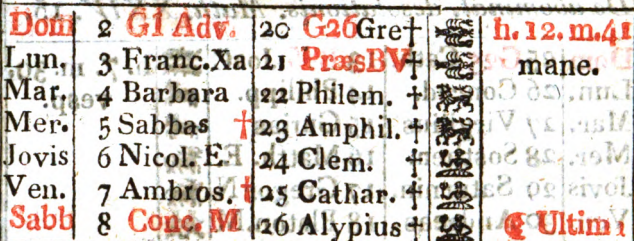 Dom 2 G1 Adv. 20 G26Gre† h. 12. m. 41
Lun. 3 Franc.Xa 21 PræsBV† mane.
Mar. 4 Barbara 22 Philem. †
Mer. 5 Sabbas † 23 Amphil. †
Jovis 6 Nicol. E. 24 Clem. †
Ven. 7 Ambros. † 25 Cathar. †
Sabb 8 Conc. M 26 Alypius † Ultim